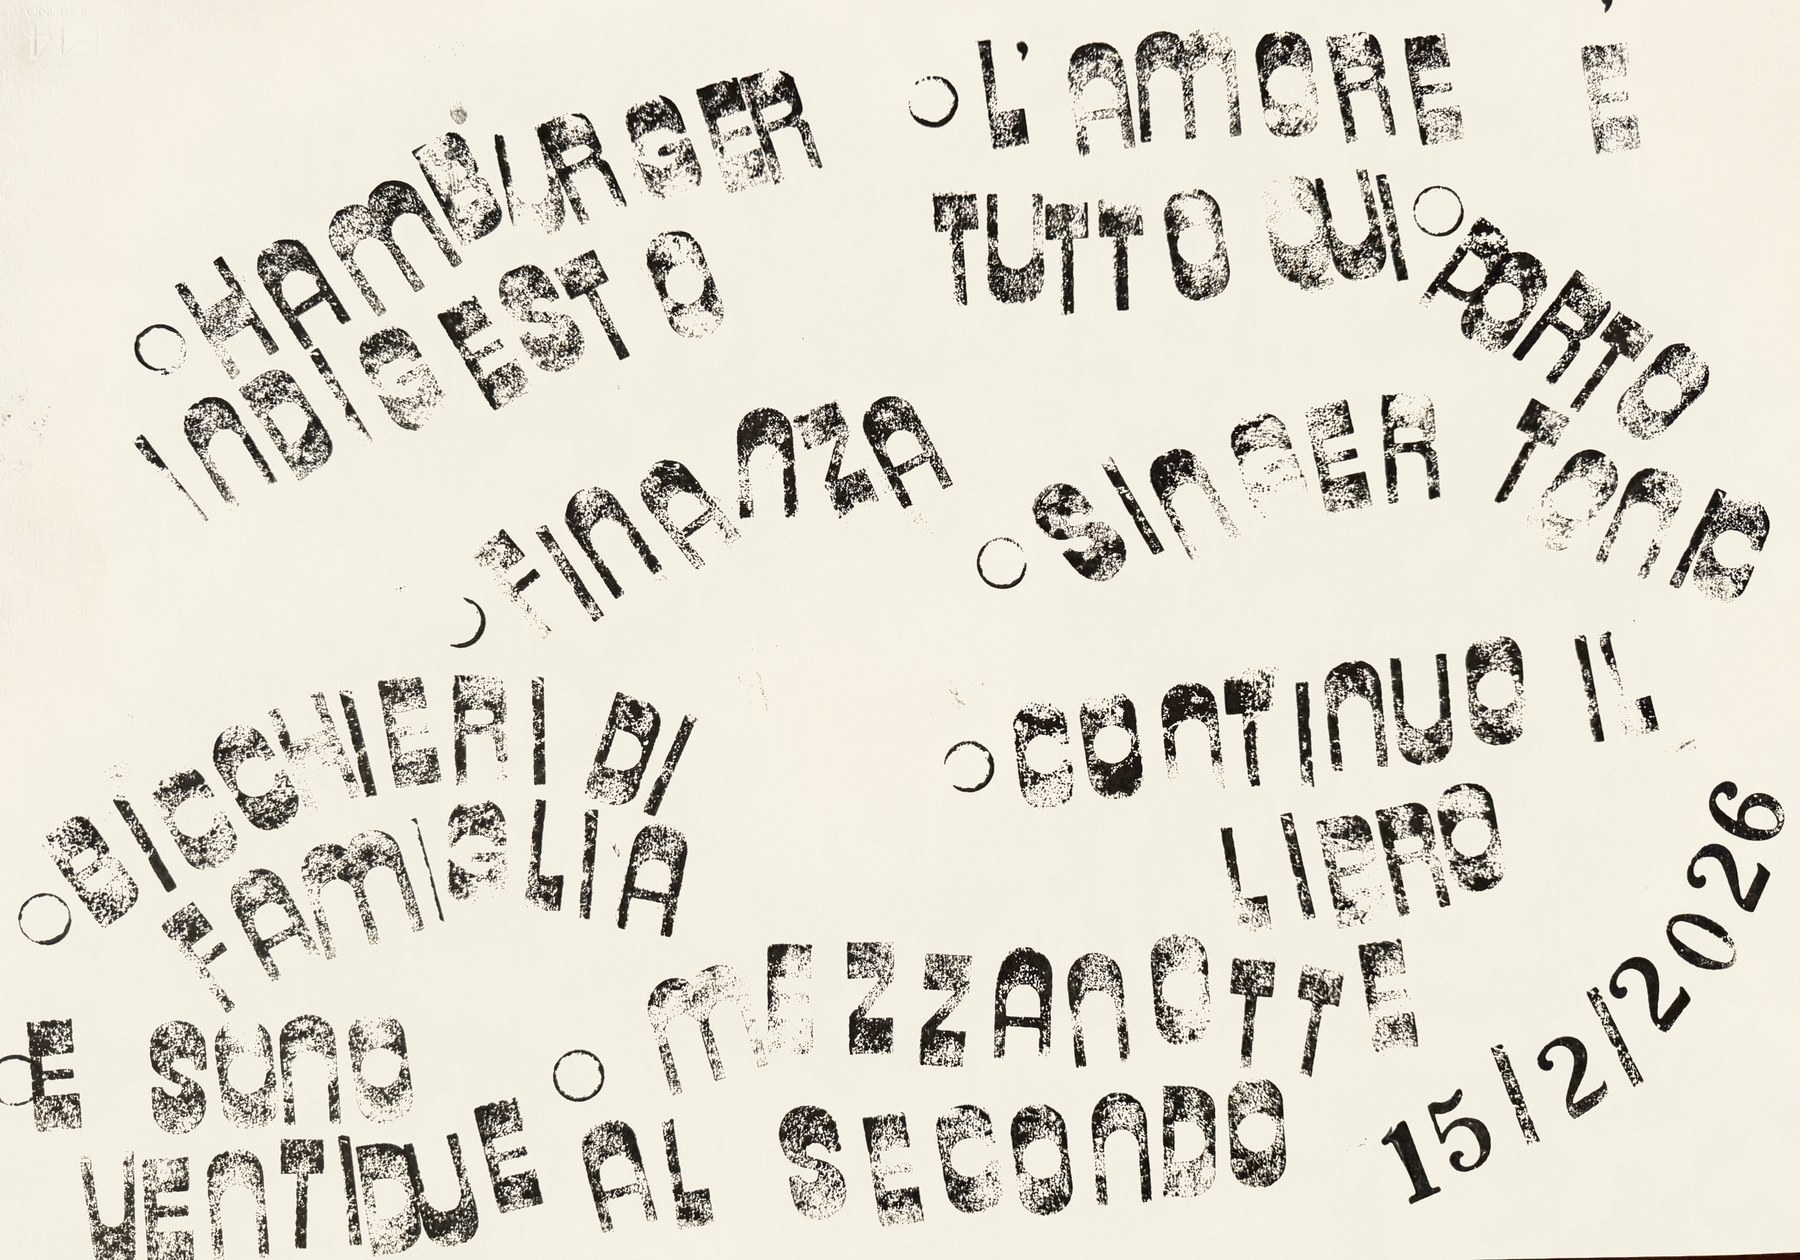 ○ HAMBURGER
INDIGESTO
○ L'AMORE È
TUTTO QUI
○ PORTO
TONIC
○ FINANZA
○ SINGER
○ BICCHIERI DI
FAMIGLIA
○ CONTINUO IL
LIBRO
○ E SONO
VENTIDUE
○ MEZZANOTTE
AL SECONDO
15/2/2026